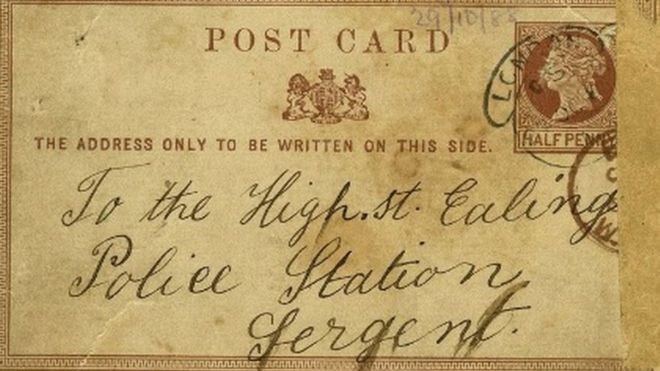 29/10/88
POST CARD
LONDON
THE ADDRESS ONLY TO BE WRITTEN ON THIS SIDE.
HALF PENNY
To the High.st. Ealing
Police Station
Sergent.